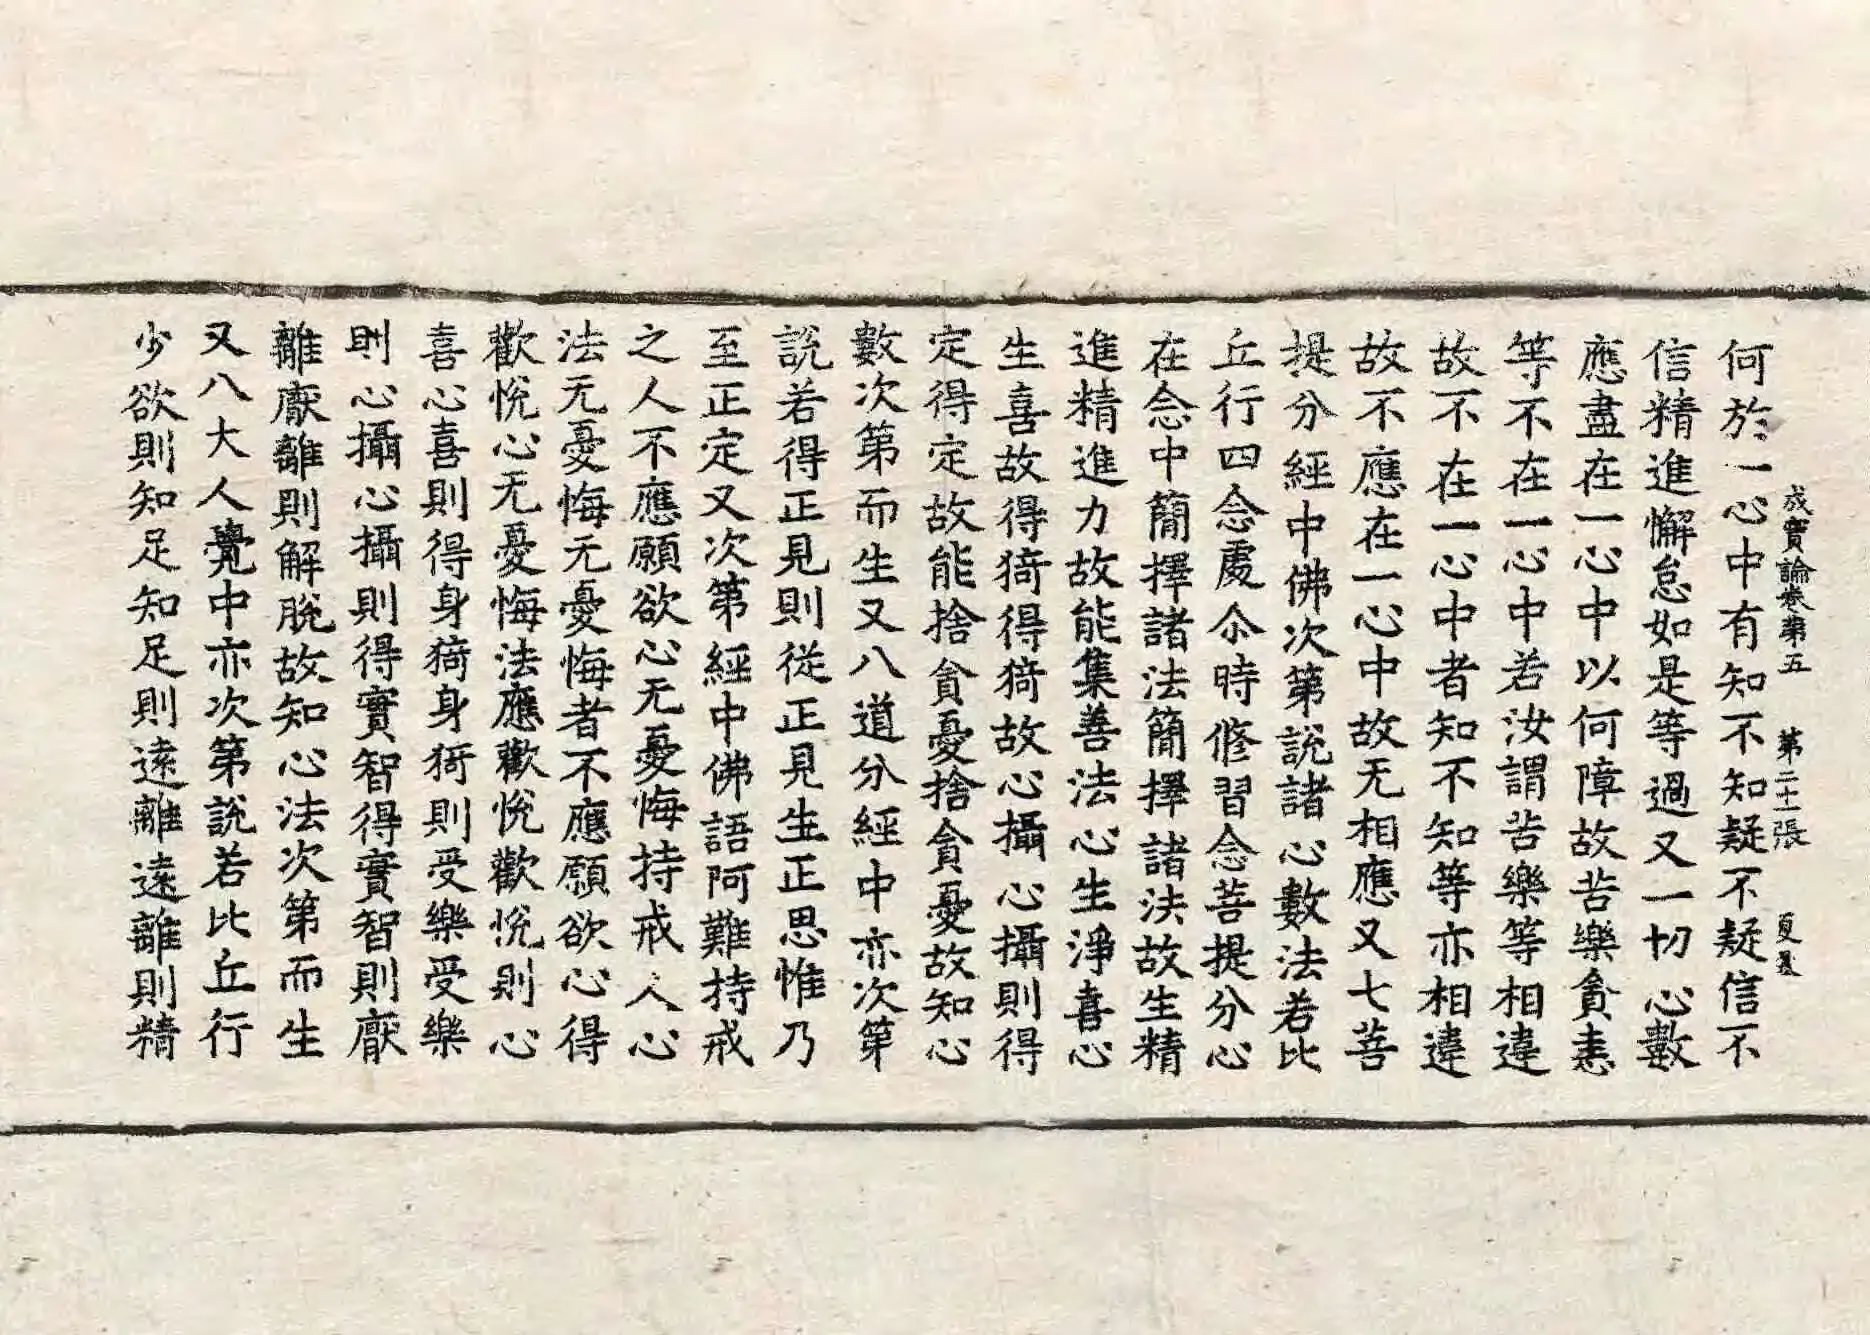 成實論卷第五 第二十一張 夏
何於一心中有知不知疑不疑信不
信精進懈怠如是等過又一切心數
應盡在一心中以何障故苦樂貪恚
等不在一心中若汝謂苦樂等相違
故不在一心中者知不知等亦相違
故不應在一心中故无相應又七菩
提分經中佛次第說諸心數法若比
丘行四念處尒時修習念菩提分心
在念中簡擇諸法簡擇諸法故生精
進精進力故能集善法心生淨喜心
生喜故得猗得猗故心攝心攝則得
定得定故能捨貪憂捨貪憂故知心
數次第而生又八道分經中亦次第
說若得正見則從正見生正思惟乃
至正定又次第經中佛語阿難持戒
之人不應願欲心无憂悔持戒人心
法无憂悔无憂悔者不應願欲心得
歡悅心无憂悔法應歡悅歡悅則心
喜心喜則得身猗身猗則受樂受樂
則心攝心攝則得實智得實智則厭
離厭離則解脫故知心法次第而生
又八大人覺中亦次第說若比丘行
少欲則知足知足則遠離遠離則精